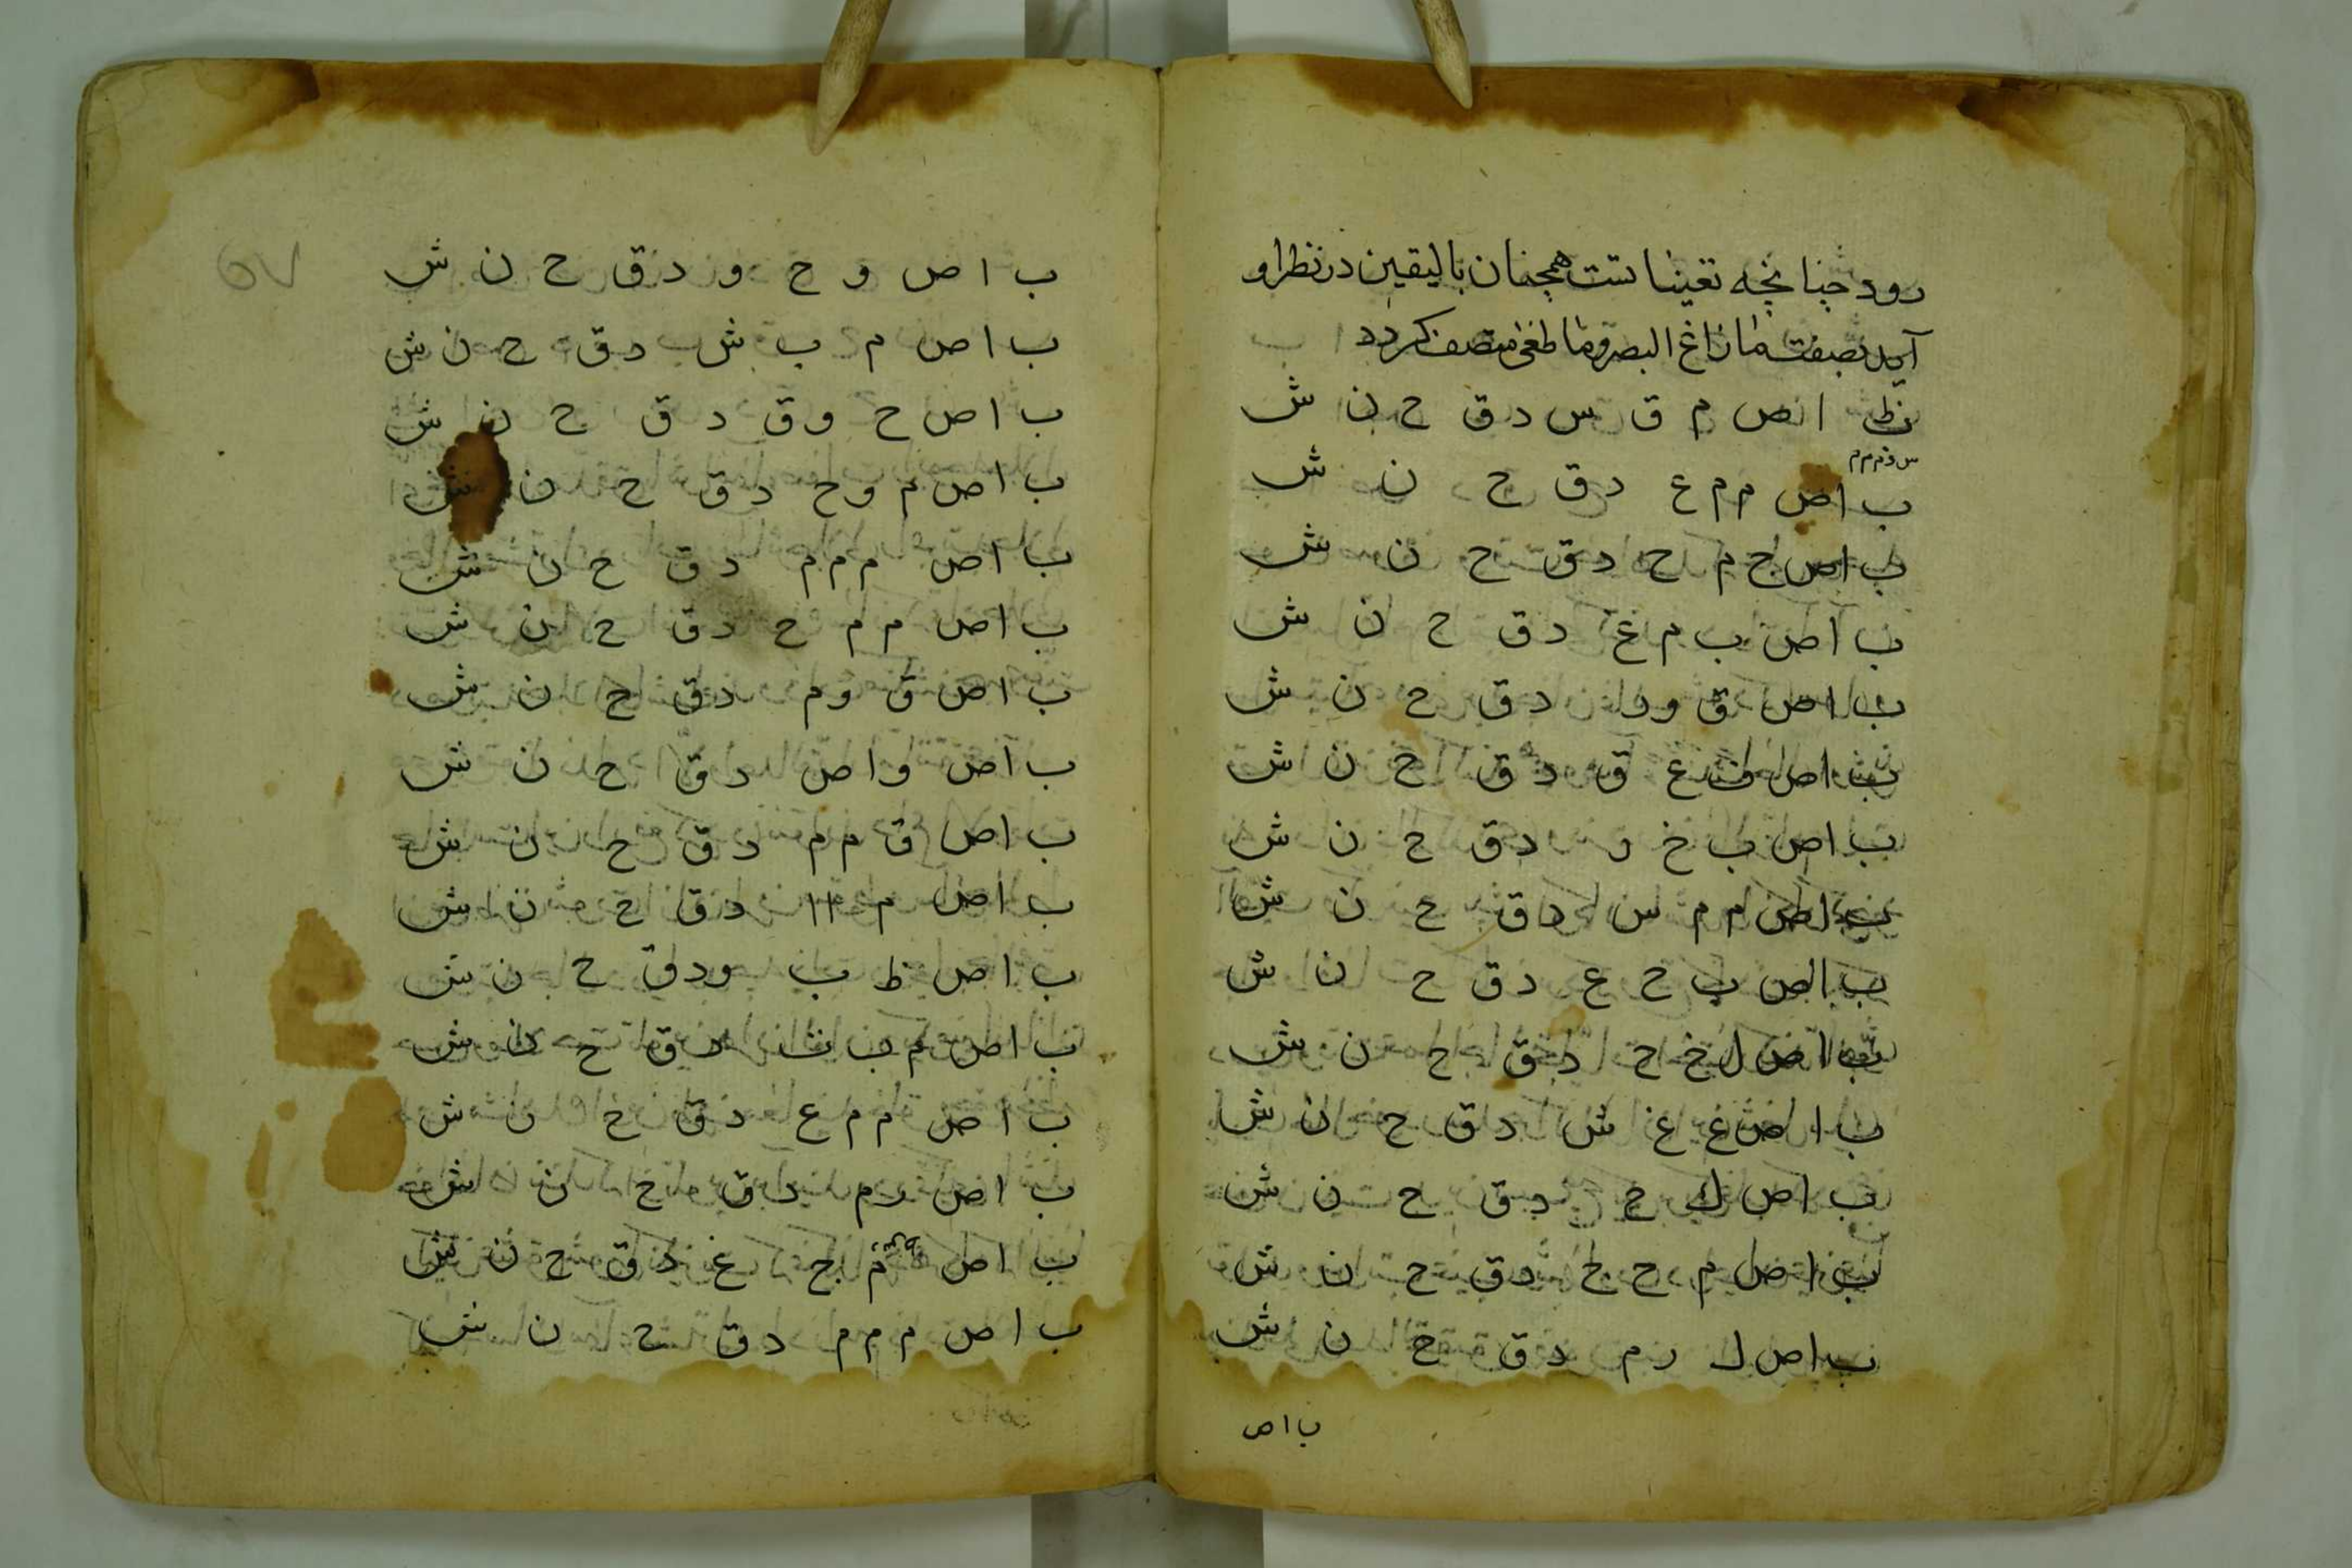 رود چنانچه تعینا تست همچنان بالیقین در نظر او
آید بصفت ما زاغ البصر وما طغی متصف کردد
ا ص م ق س د ق ح ن ش
س و م م م
ب ا ص م م ع د ق ح ن ش
ب ا ص ج م ح د ق ح ن ش
ب ا ص ب م غ د ق ح ن ش
ب ا ص ق و ر د ق ح ن ش
ب ا ص ع ق د ق ح ن ش
ب ا ص ب خ و د ق ح ن ش
ب ا ص م م س د ق ح ن ش
ب ا ص ب ح ع د ق ح ن ش
ب ا ص ل خ ح د ق ح ن ش
ب ا ص غ غ ش د ق ح ن ش
ب ا ص ک ح د ق ح ن ش
ب ا ص م ح ج د ق ح ن ش
ب ا ص ل ر م د ق ح ن ش
ب ا ص
ب ا ص و ح و د ق ح ن ش
ب ا ص م ب ش د ق ح ن ش
ب ا ص ح و ق د ق ح ن ش
ب ا ص م و ح د ق ح ن ش
ب ا ص م م م د ق ح ن ش
ب ا ص م م ح د ق ح ن ش
ب ا ص ق و م د ق ح ن ش
ب ا ص و ا ص د ق ح ن ش
ب ا ص ق م م د ق ح ن ش
ب ا ص م ا ا د ق ح ن ش
ب ا ص ظ ب و د ق ح ن ش
ب ا ص م ب ث د ق ح ن ش
ب ا ص م م ع د ق ح ن ش
ب ا ص ر م د ق ح ن ش
ب ا ص م ج غ د ق ح ن ش
ب ا ص م م م د ق ح ن ش